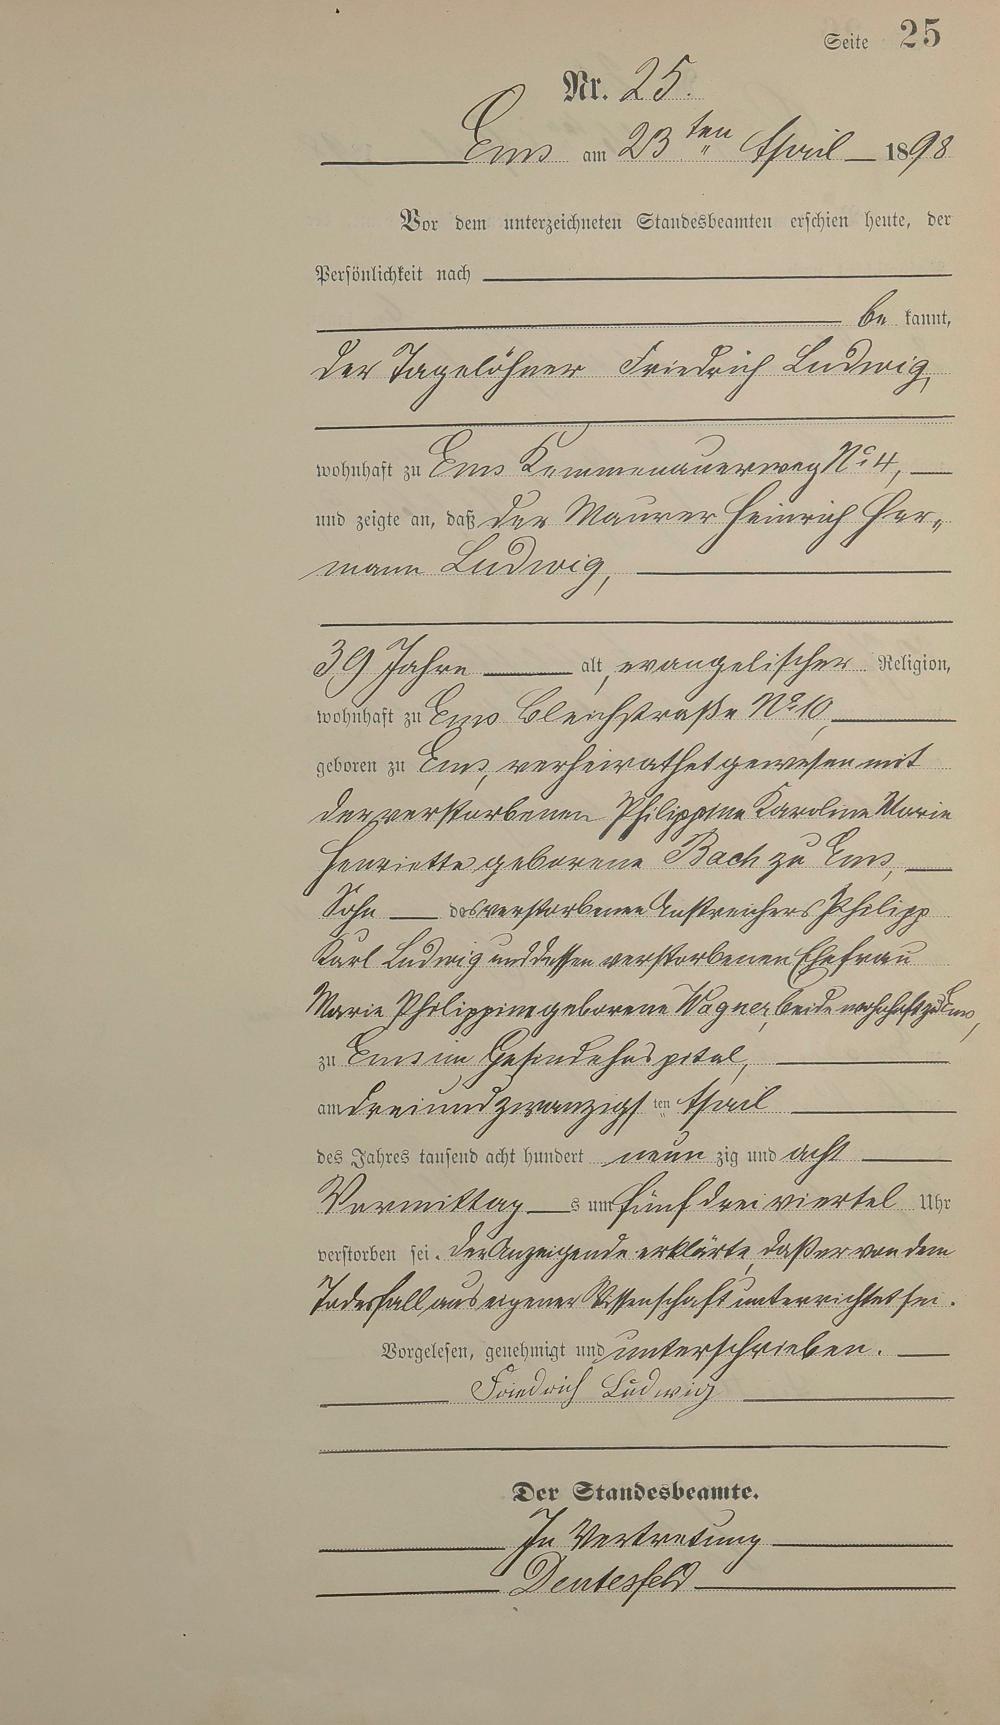 Seite 25
Nr. 25.
Ems am 23ten April 1898
Vor dem unterzeichneten Standesbeamten erschien heute, der
Persönlichkeit nach
be kannt,
der Tagelöhner Friedrich Ludwig,
wohnhaft zu Ems Kemmenauerweg No 4,
und zeigte an, daß der Maurer Heinrich Her„
mann Ludwig,
39 Jahre alt, evangelischer Religion,
wohnhaft zu Ems Bleichstraße No 10,
geboren zu Ems, verheirathet gewesen mit
der verstorbenen Philippine Karoline Marie
Henriette geborene Bach zu Ems,
Sohn des verstorbenen Anstreichers Philipp
Karl Ludwig und dessen verstorbenen Ehefrau
Marie Philippine geborene Wagner, beide wohnhaft zu Ems,
zu Ems im Gesindehospital,
am dreiundzwanzigsten April
des Jahres tausend acht hundert neun zig und acht
Vormittag s um fünf drei viertel Uhr
verstorben sei. Der Anzeigende erklärte, daß er von dem
Todesfall aus eigener Wissenschaft unterrichtet sei.
Vorgelesen, genehmigt und unterschrieben.
Friedrich Ludwig
Der Standesbeamte.
In Vertretung